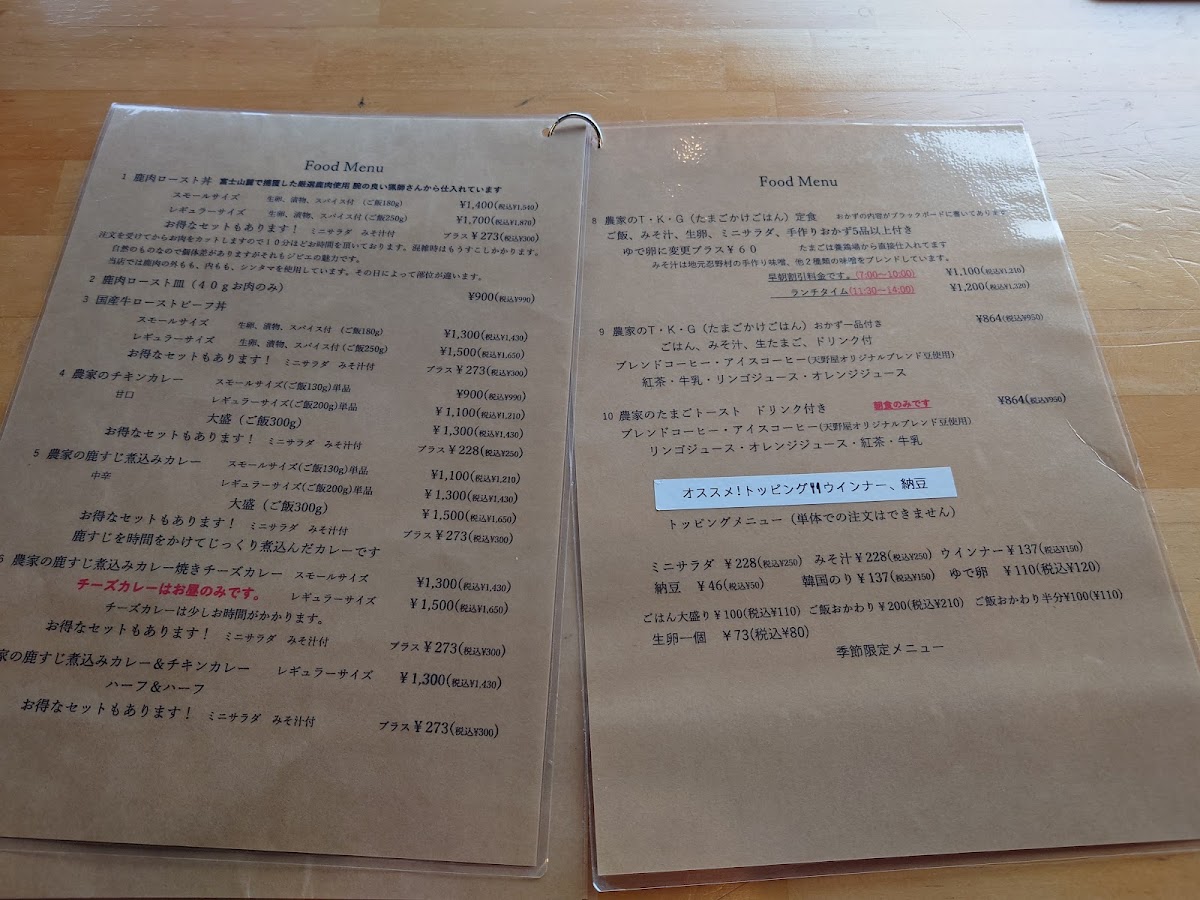 Food Menu
1 鹿肉ロースト丼 富士山麓で捕獲した厳選鹿肉使用 腕の良い猟師さんから仕入れています
スモールサイズ 生卵、漬物、スパイス付 (ご飯180g) ¥1,400(税込¥1,540)
レギュラーサイズ 生卵、漬物、スパイス付 (ご飯250g) ¥1,700(税込¥1,870)
お得なセットもあります! ミニサラダ みそ汁付 プラス¥273(税込¥300)
注文を受けてからお肉をカットしますので10分ほどお時間を頂いております。混雑時はもうすこしかかります。
自然のものなので個体差がありますがそれもジビエの魅力です。
当店では鹿肉の外もも、内もも、シンタマを使用しています。その日によって部位が違います。
2 鹿肉ロースト皿(40gお肉のみ) ¥900(税込¥990)
3 国産牛ローストビーフ丼
スモールサイズ 生卵、漬物、スパイス付 (ご飯180g) ¥1,300(税込¥1,430)
レギュラーサイズ 生卵、漬物、スパイス付 (ご飯250g) ¥1,500(税込¥1,650)
お得なセットもあります! ミニサラダ みそ汁付 プラス¥273(税込¥300)
4 農家のチキンカレー スモールサイズ(ご飯130g)単品 ¥900(税込¥990)
甘口 レギュラーサイズ(ご飯200g)単品 ¥1,100(税込¥1,210)
大盛(ご飯300g) ¥1,300(税込¥1,430)
お得なセットもあります! ミニサラダ みそ汁付 プラス¥228(税込¥250)
5 農家の鹿すじ煮込みカレー スモールサイズ(ご飯130g)単品 ¥1,100(税込¥1,210)
中辛 レギュラーサイズ(ご飯200g)単品 ¥1,300(税込¥1,430)
大盛(ご飯300g) ¥1,500(税込¥1,650)
お得なセットもあります! ミニサラダ みそ汁付 プラス¥273(税込¥300)
鹿すじを時間をかけてじっくり煮込んだカレーです
6 農家の鹿すじ煮込みカレー焼きチーズカレー スモールサイズ ¥1,300(税込¥1,430)
チーズカレーはお昼のみです。 レギュラーサイズ ¥1,500(税込¥1,650)
チーズカレーは少しお時間がかかります。
お得なセットもあります! ミニサラダ みそ汁付 プラス¥273(税込¥300)
家の鹿すじ煮込みカレー&チキンカレー レギュラーサイズ ¥1,300(税込¥1,430)
ハーフ&ハーフ
お得なセットもあります! ミニサラダ みそ汁付 プラス¥273(税込¥300)
Food Menu
8 農家のT・K・G(たまごかけごはん)定食 おかずの内容がブラックボードに書いてあります
ご飯、みそ汁、生卵、ミニサラダ、手作りおかず5品以上付き
ゆで卵に変更プラス¥60 たまごは養鶏場から直接仕入れてます
みそ汁は地元忍野村の手作り味噌、他2種類の味噌をブレンドしています。
早朝割引料金です。(7:00~10:00) ¥1,100(税込¥1,210)
ランチタイム(11:30~14:00) ¥1,200(税込¥1,320)
9 農家のT・K・G(たまごかけごはん)おかず一品付き ¥864(税込¥950)
ごはん、みそ汁、生たまご、ドリンク付
ブレンドコーヒー・アイスコーヒー(天野屋オリジナルブレンド豆使用)
紅茶・牛乳・リンゴジュース・オレンジジュース
10 農家のたまごトースト ドリンク付き 朝食のみです ¥864(税込¥950)
ブレンドコーヒー・アイスコーヒー(天野屋オリジナルブレンド豆使用)
リンゴジュース・オレンジジュース・紅茶・牛乳
オススメ!トッピング🍴ウインナー、納豆
トッピングメニュー(単体での注文はできません)
ミニサラダ ¥228(税込¥250) みそ汁¥228(税込¥250) ウインナー¥137(税込¥150)
納豆 ¥46(税込¥50) 韓国のり¥137(税込¥150) ゆで卵 ¥110(税込¥120)
ごはん大盛り¥100(税込¥110) ご飯おかわり¥200(税込¥210) ご飯おかわり半分¥100(¥110)
生卵一個 ¥73(税込¥80)
季節限定メニュー